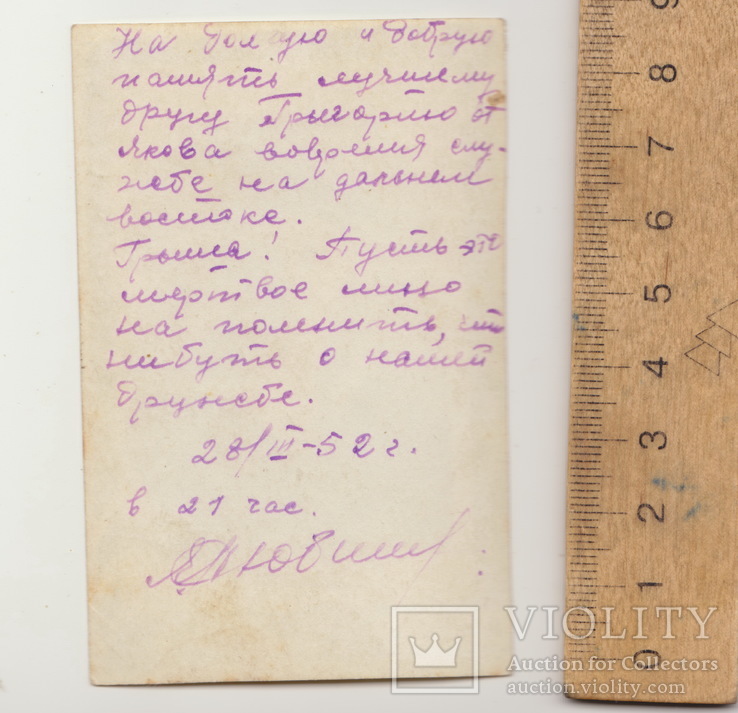 На долгую и добрую
память лучшему
другу Грыгорию от
Якова вовремя слу-
жбе на дальнем
востоке.
Грыша! Пусть это
мертвое лицо
на помнить, што
нибуть о нашей
дружебе.
28/III-52 г.
в 21 час.
9
8
7
6
5
4
3
2
1
0
VIOLITY
Auction for Collectors
auction.violity.com